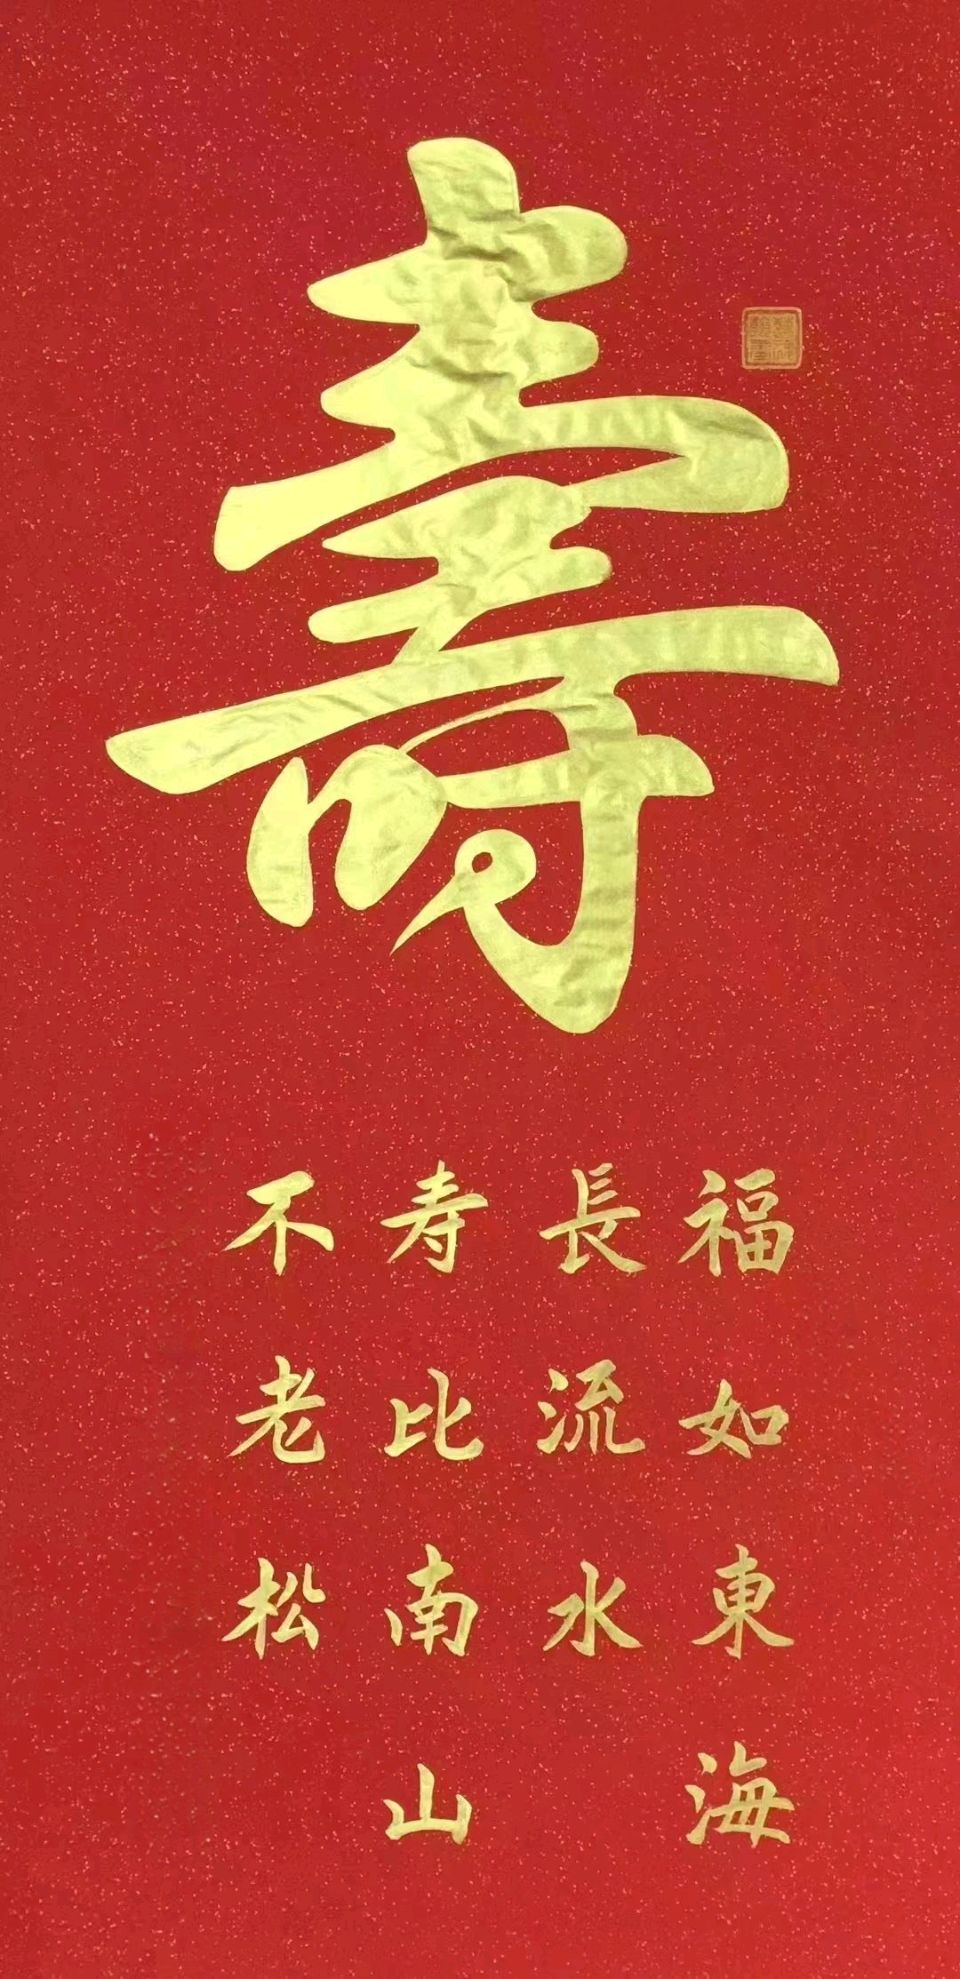 壽
福如東海
長流水
寿比南山
不老松